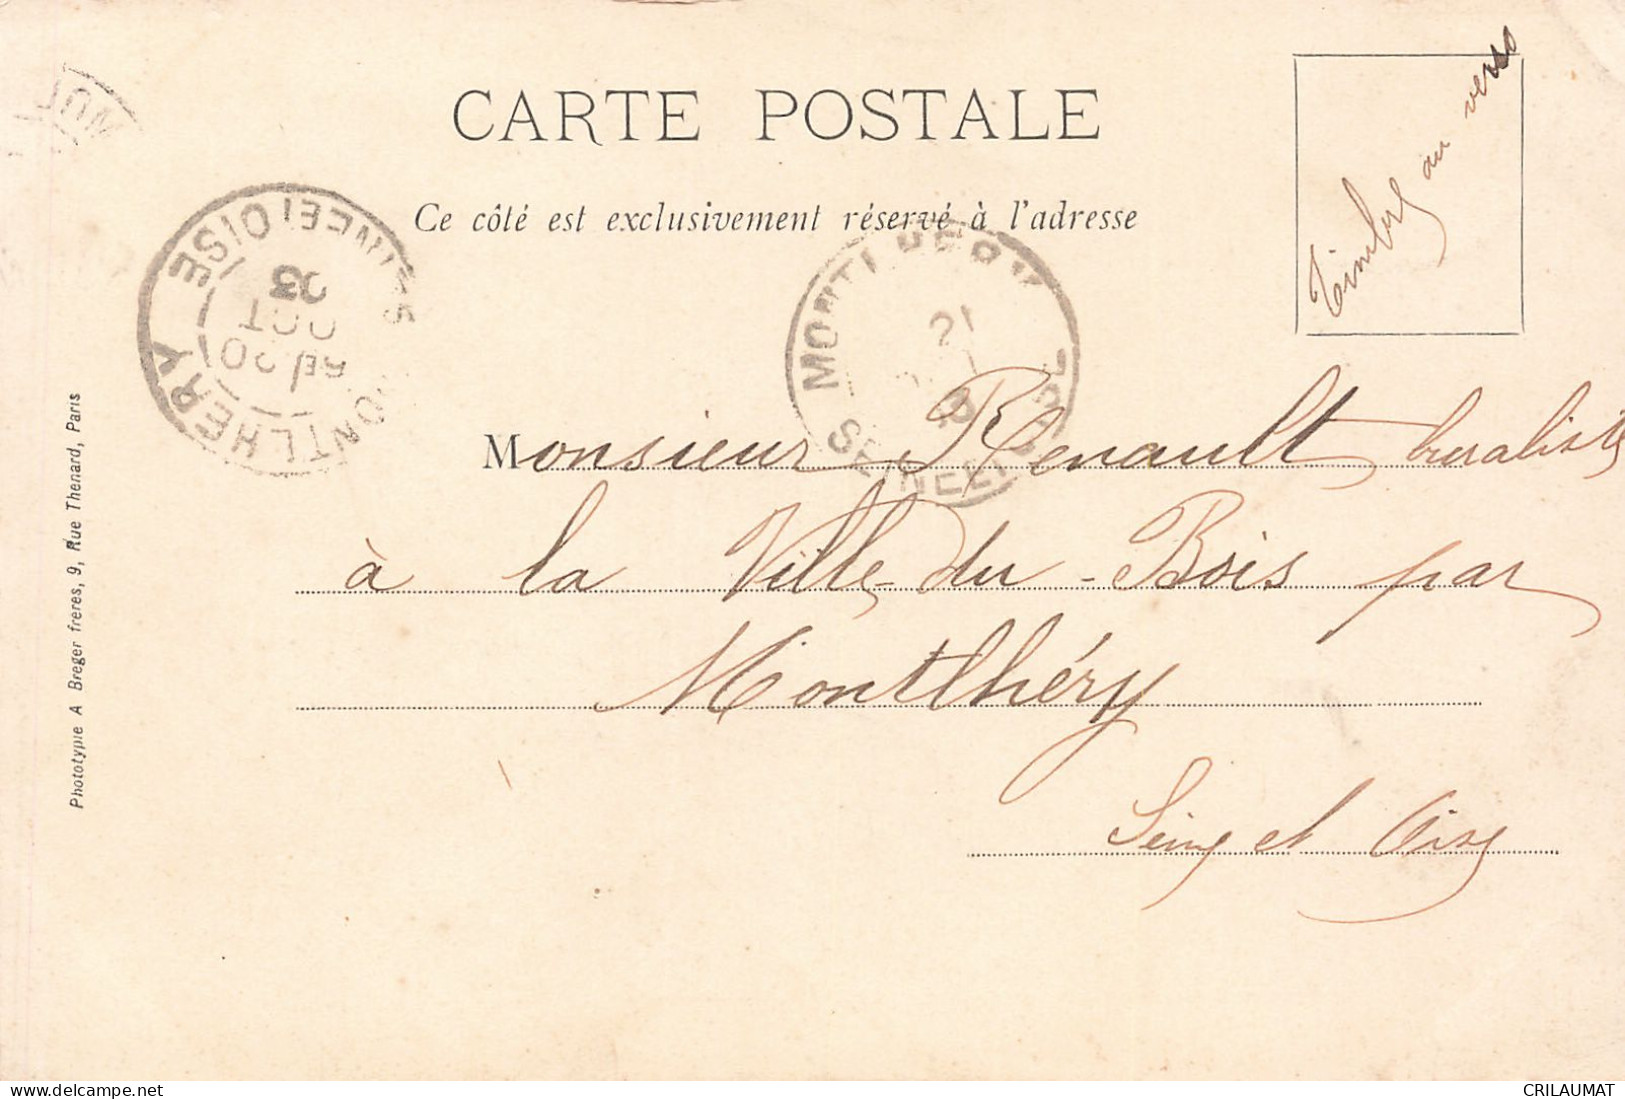 CARTE POSTALE
Ce côté est exclusivement réservé à l'adresse
Timbre au verso
MONTLHERY
SEINE ET OISE
20
OCT
03
MONTLHERY
21
SEINE ET OISE
Monsieur Renault, buraliste
à la Ville-du-Bois par
Montlhéry
Seine et Oise
Phototypie A Breger freres, 9, Rue Thenard, Paris
www.delcampe.net
CRILAUMAT